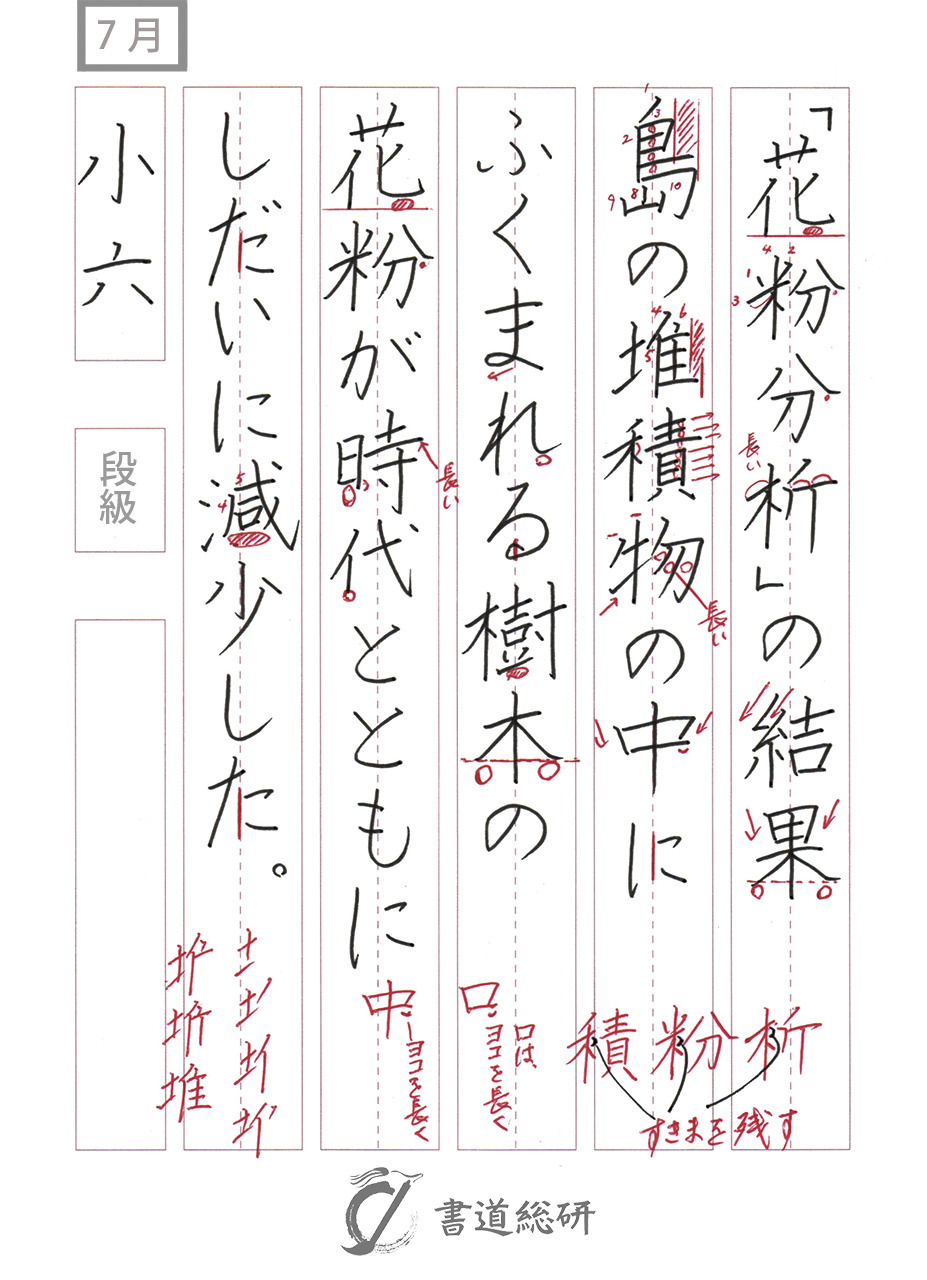 7月
「花粉分析」の結果
島の堆積物の中に
ふくまれる樹木の
花粉が時代とともに
しだいに減少した。
小六
段級
長い
長い
長い
析
粉
積
すきまを残す
口は、
ヨコを長く
口
中
ヨコを長く
堆
書道総研